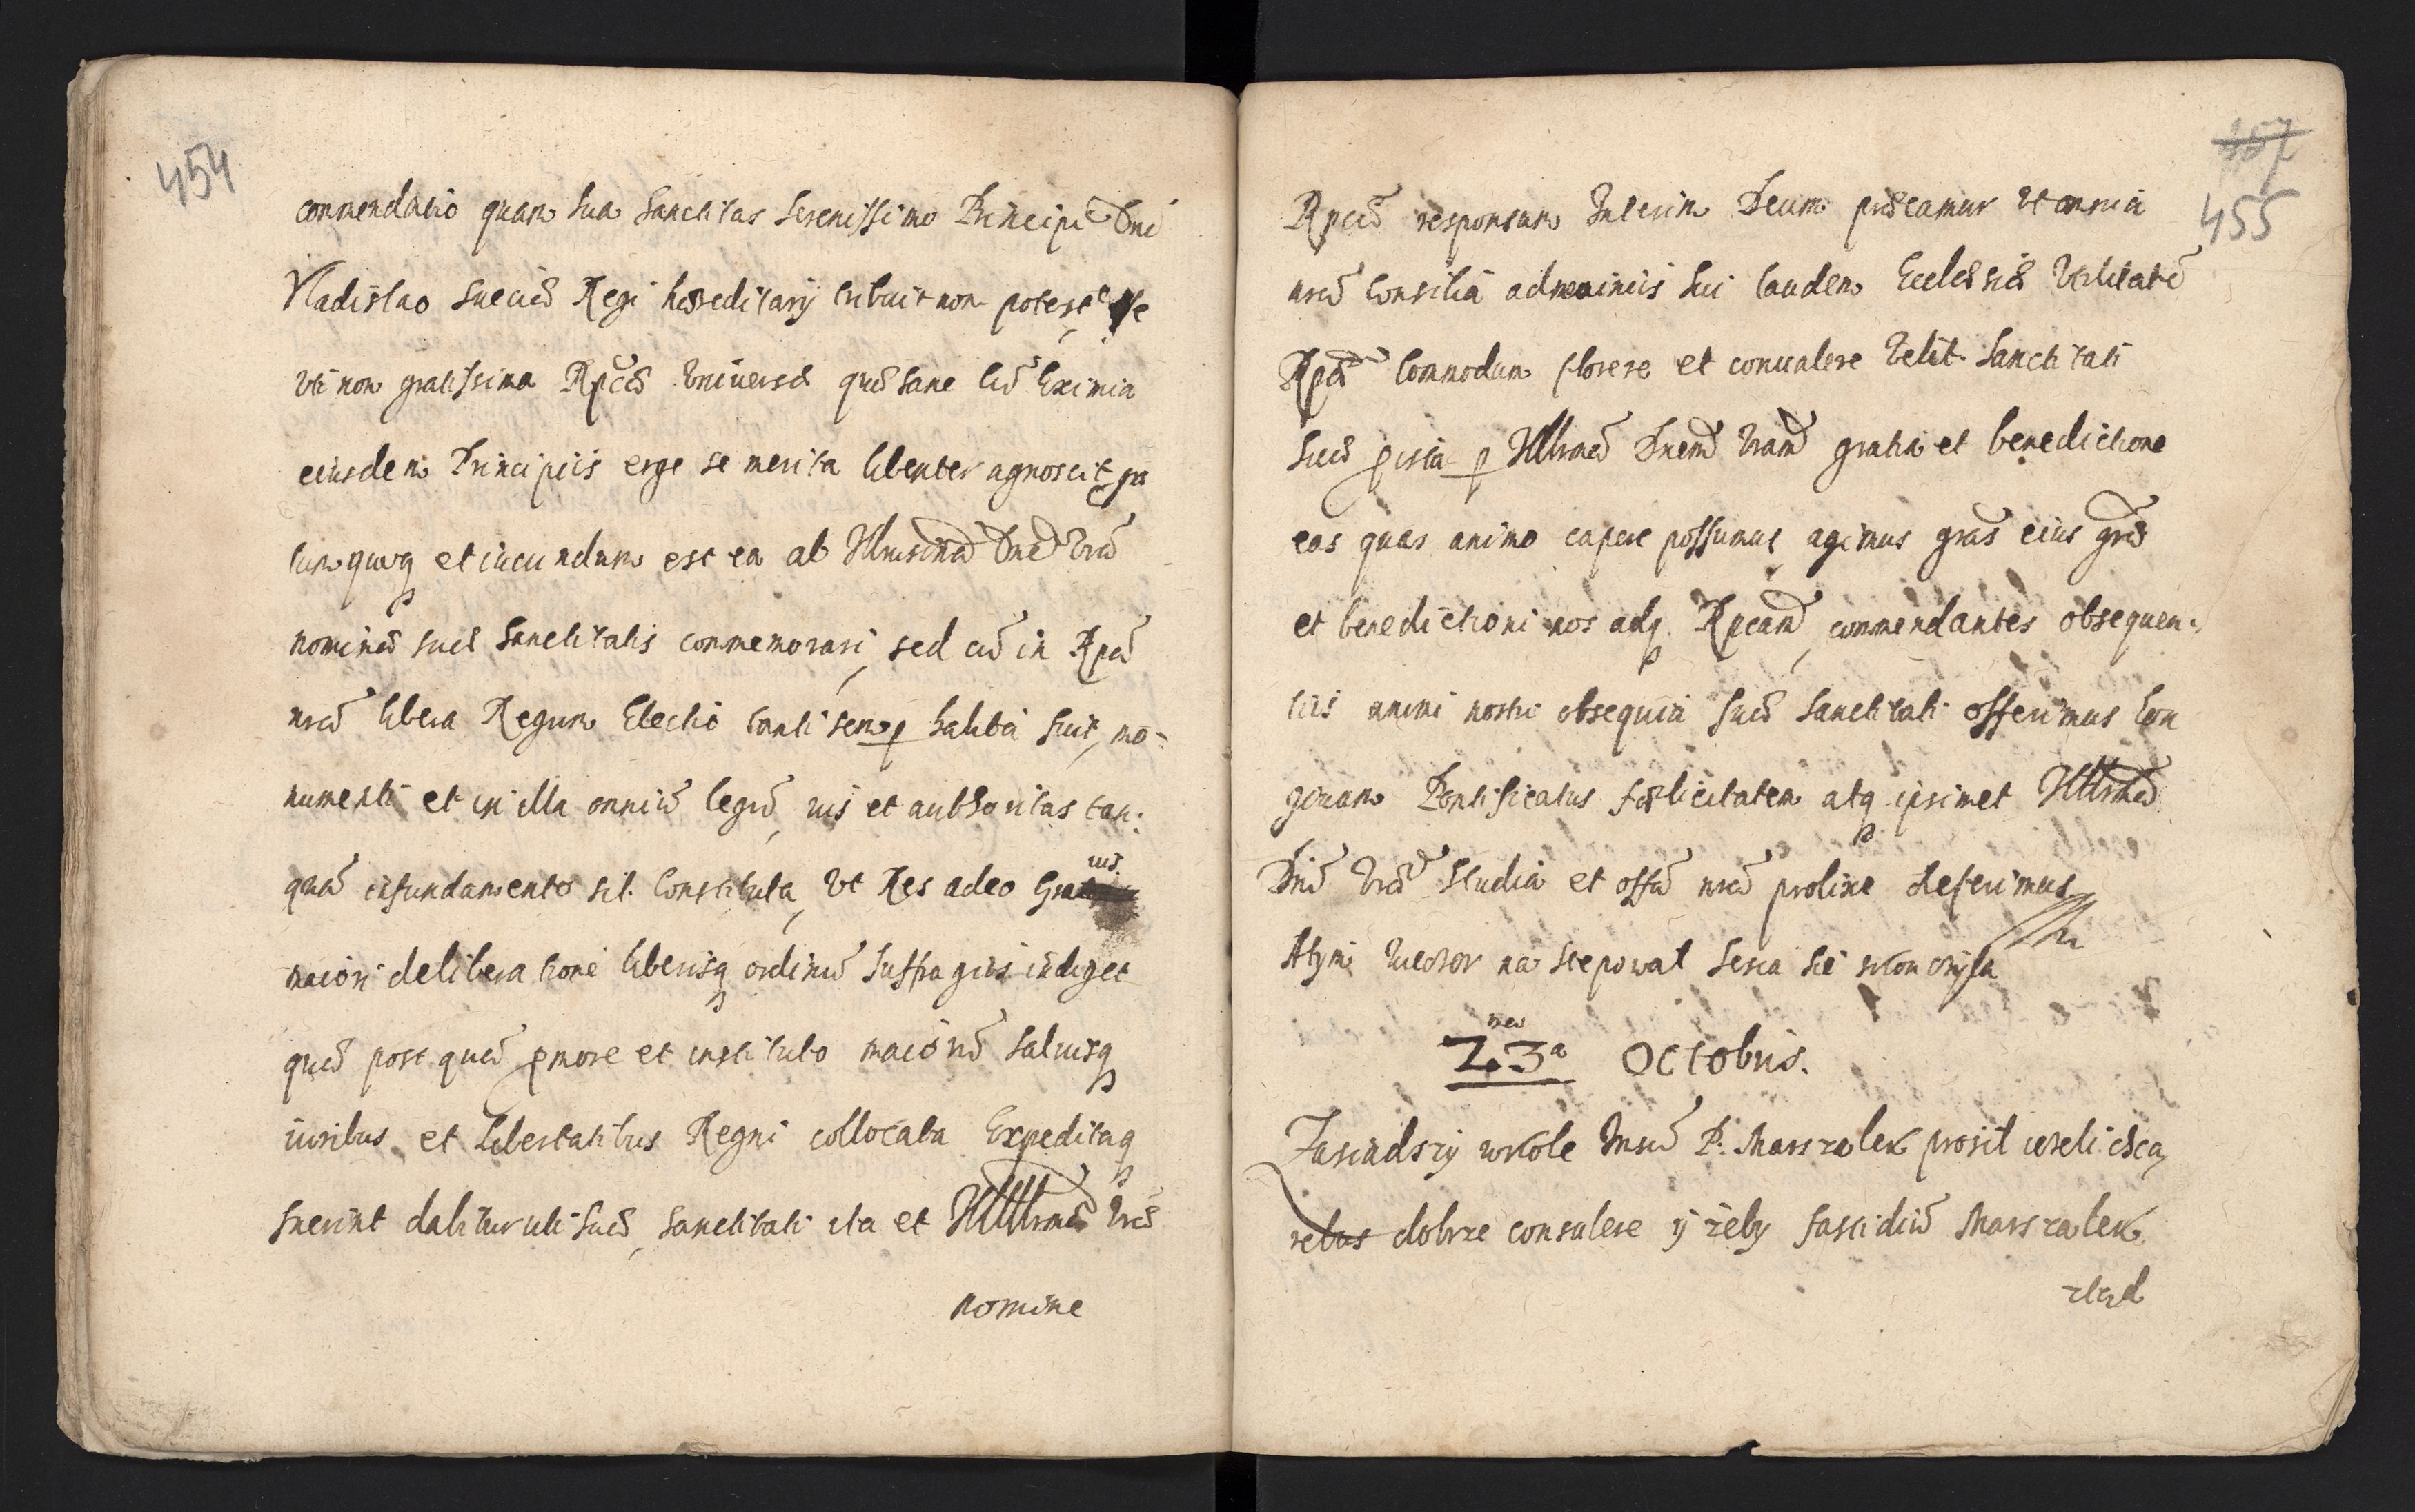 454
commendatio quam Sua Sanctitas Serenissimo Principi Dni
Vladislao Sueciæ Regi hæreditarij tribuit non potest esse
Vti non gratissima Rpcæ Vniversæ quæ sane cũ Eximia
eiusdem Principiis erge se merita libenter agnoscit gra
tum quoq et iucundum est ea ab Illmã Dne Vrã
nominæ suæ Sanctitatis commemorari, sed cũ in Rpcã
nrã libera Regum Electio tanti semp habita fuit, mo-
numenti et in illa omniũ legũ, vis et authoritas tan:
quã in fundamento sit Constituta, Vt Res adeo Gra uis
maiori deliberatione liberisq ordinũ Suffragiis indiget
quæ post quã p more et instituto maiorũ Saluisq
iuribus et Libertatibus Regni collocata Expeditaq
fuerint dabitur uti Suæ, Sanctitati ita et Illlmæ Vræ
nomine
357
455
Rpcæ responsum Interim Deum præcamur Vt omnia
nrã Consilia ad nominis Sui laudem Ecclesiæ Vtilitatẽ
Rpcæ Commodum florere et conualere Velit. Sanctitati
Suæ p ista p Illmã Dnem Vram gratia et benedictione
eas quas animo capere possumus agimus gras eius græ
et benedictioni nos adq Rpcam, commendantes obsequen:
tiis animi nostri obsequia Suæ Sanctitati offerimus Lon
giouam Pontificatus fælicitatem atq ipsimet Illmæ
Dnæ Vræ Studia et offã nrã prolixe deferimus
A tym wieczor na stępowal Sesia się skonczyła
nea
23ª Octobris.
Zasiadszy w kole Imsc P. Marszalek prosil ieseli chcą
rebus dobrze consulere ij żeby fastidiũ Marszalek
ztąd